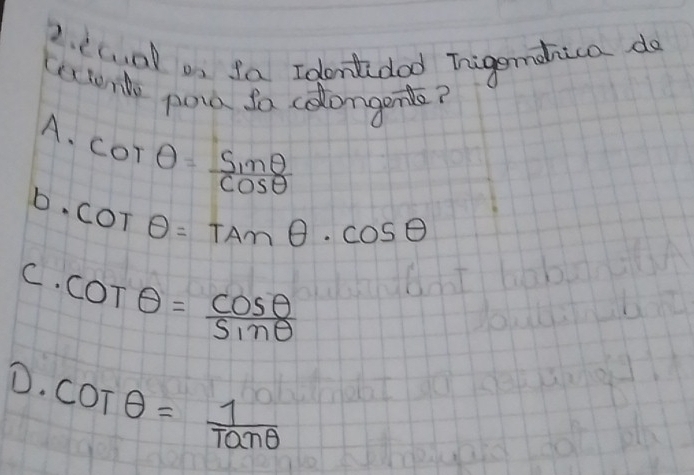 2. ¿cual es la Identidad Trigometrica de
cociente para la cotangente?
A. COT θ = Sinθ / cosθ
b. COT θ = TAn θ . COS θ
C. COT θ = cosθ / Sinθ
D. COT θ = 1 / Tanθ